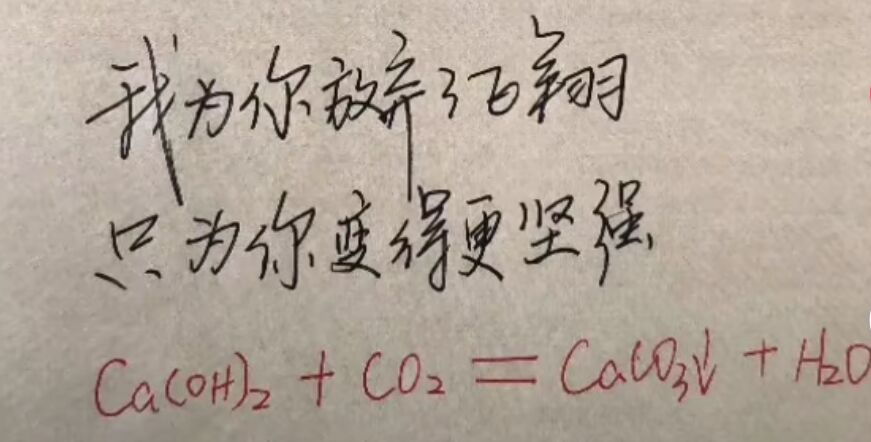 我为你放弃了飞翔
只为你变得更坚强
Ca(OH)₂ + CO₂ = CaCO₃↓ + H₂O